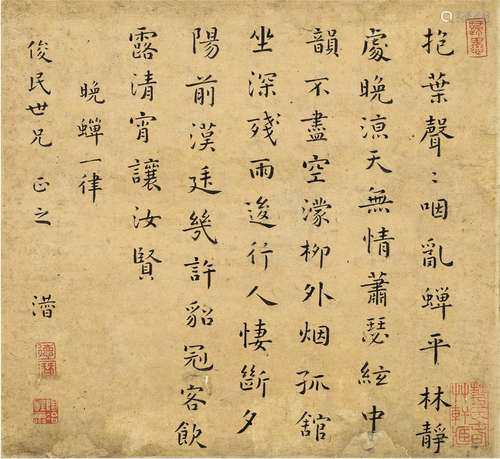 抱葉聲〻咽亂蟬平林靜
處晚涼天無情蕭瑟絃中
韻不盡空濛柳外烟孤館
坐深殘雨後行人悽斷夕
陽前漢廷幾許貂冠客飲
露清宵讓汝賢
晚蟬一律
俊民世兄 正之 濳